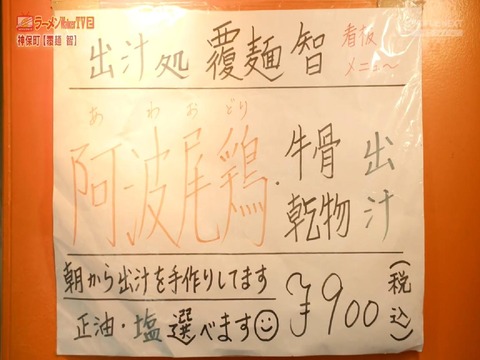 ラーメンWalkerTV2
神保町【覆麺 智】
出汁処 覆麺 智
看板
メニュ〜
あわおどり
阿波尾鶏・
牛骨
乾物
出汁
朝から出汁を手作りしてます
正油・塩選べます☺
¥900
(税込)